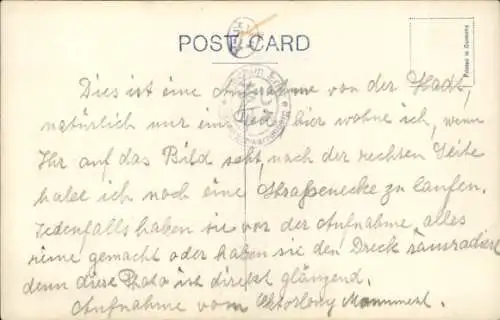 POST CARD
Printed in Germany
Dies ist eine Aufnahme von der Stadt,
natürlich nur ein hier wohne ich, wenn
Ihr auf das Bild seht, nach der rechten Seite
habe ich noch eine Straßenecke zu laufen.
Jedenfalls haben sie vor der Aufnahme alles
reine gemacht oder haben sie den Dreck rausradiert
denn diese Photo ist direkt glänzend.
Aufnahme vom Monument.